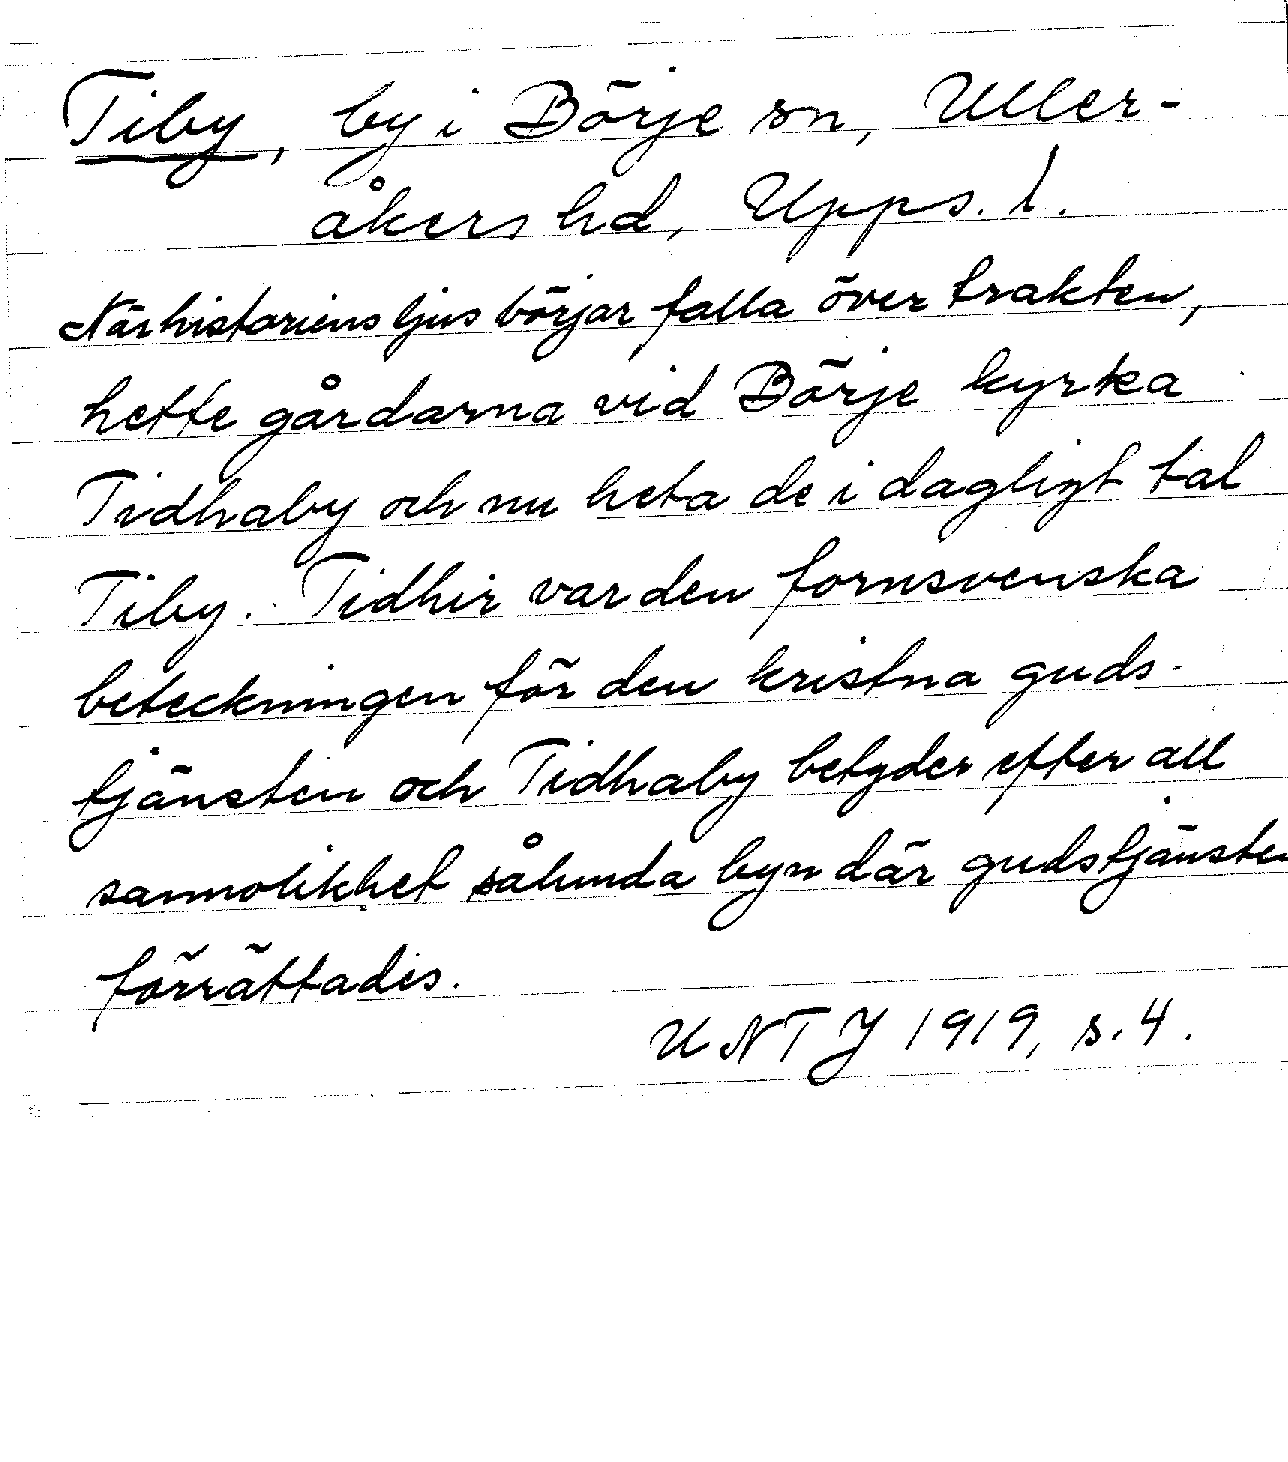 Tiby, by i Börje sn, Uller-
åkers hd, Upps. l.
När historiens ljus börjar falla över trakten,
hette gårdarna vid Börje kyrka
Tidhaby och nu heta de i dagligt tal
Tiby. Tidhir var den fornsvenska
beteckningen för den kristna guds-
tjänsten och Tidhaby betyder efter all
sannolikhet sålunda byn där gudstjänsten
förrättades.
UNTJ 1919, s. 4.